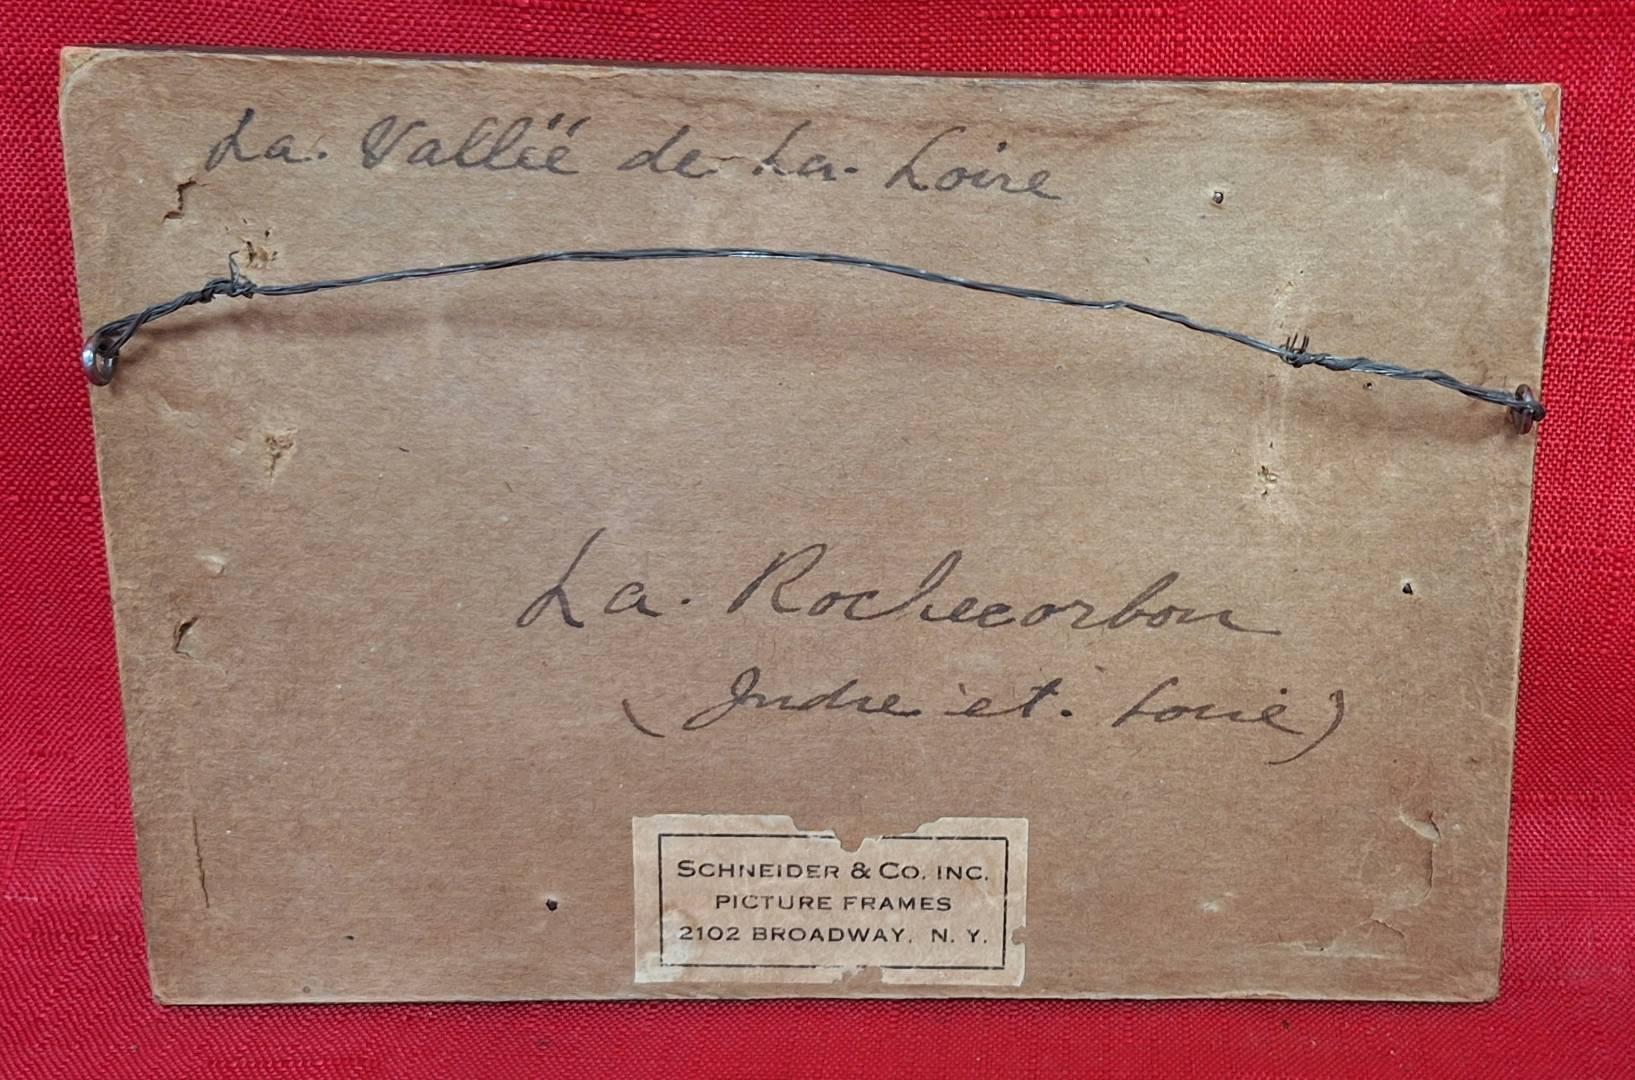 La. Valleë de La. Loire
La. Rochecorbon
(Indre et. Loire)
SCHNEIDER & CO. INC.
PICTURE FRAMES
2102 BROADWAY, N. Y.